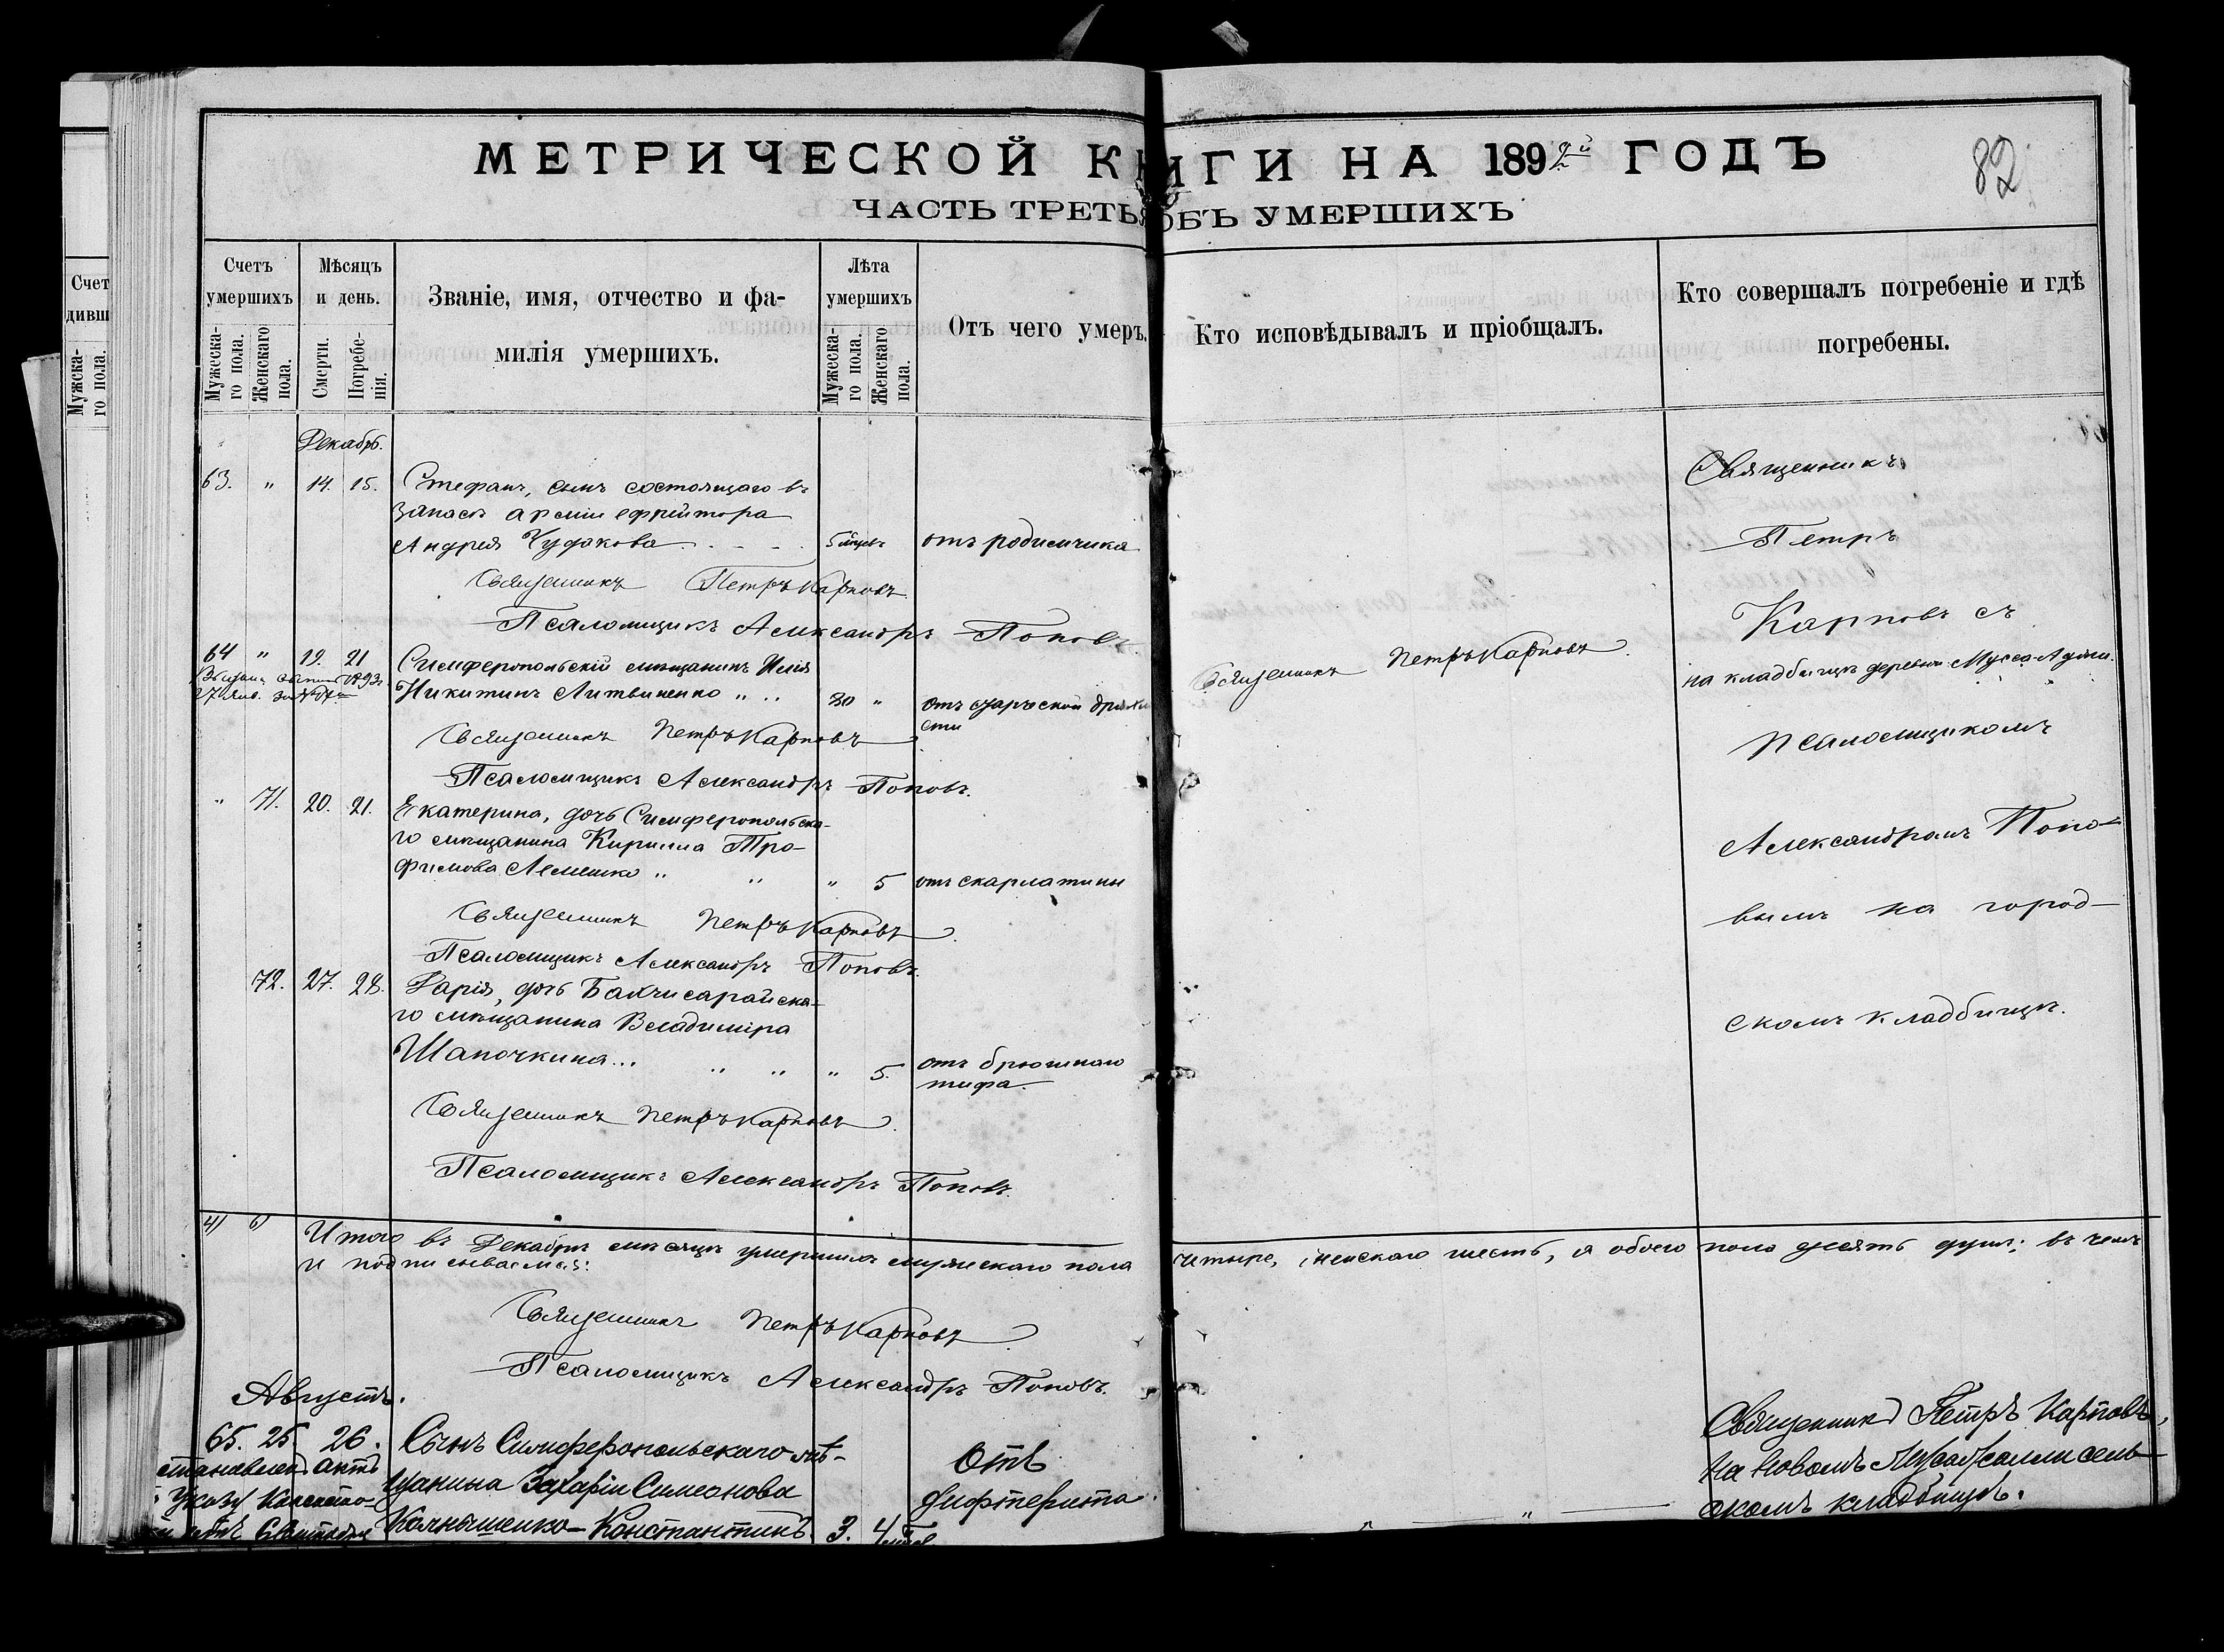 МЕТРИЧЕСКОЙ КНИГИ НА 1892й ГОДЪ
82
ЧАСТЬ ТРЕТЬЯ ОБЪ УМЕРШИХЪ
Счет
дивш
Мужска-
го пола.
Счетъ умершихъ
Мужеска-
го пола.
Женскаго
пола.
Мѣсяцъ и день.
Смерти.
Погребе-
нія.
Званіе, имя, отчество и фа-
милія умершихъ.
Лѣта умершихъ
Мужеска-
го пола.
Женскаго
пола.
Отъ чего умеръ.
Кто исповѣдывалъ и пріобщалъ.
Кто совершалъ погребеніе и гдѣ
погребены.
Декабрь.
63. " 14. 15. Стефанъ, сынъ состоящаго въ
запасѣ арміи ефрейтора
Андрея Чудакова 5 мѣсяц. отъ родимчика
Священникъ Петръ Карповъ
Псаломщикъ Александръ Поповъ
64 " 19. 21 Симферопольскій мѣщанинъ Илія
Никитинъ Литвиненко " 80 " отъ старческой дряхло
сти
1893г.
27 Янв. за №
Священникъ Петръ Карповъ
Псаломщикъ Александръ Поповъ.
" 71. 20. 21. Екатерина, дочь Симферопольска-
го мѣщанина Кирилла Тро-
фимова Лемешко " " " 5 отъ скарлатины
Священникъ Петръ Карповъ
Псаломщикъ Александръ Поповъ.
72. 27. 28. Дарія, дочь Бахчисарайска-
го мѣщанина Владиміра
Шапочкина... " " " 5. отъ брюшнаго
тифа.
Священникъ Петръ Карповъ
Псаломщикъ Александръ Поповъ.
Священникъ Петръ Карповъ.
Священникъ
Петръ
Карповъ съ
на кладбищѣ деревни Мусса-Аджи.
псаломщикомъ
Александромъ Попо-
вымъ на город-
скомъ кладбищѣ.
4) 6) Итого въ Декабрѣ мѣсяцѣ умершихъ мужескаго пола четыре, женскаго шесть, а обоего пола десять душъ; въ чемъ
и подписываемся:
Священникъ Петръ Карповъ
Псаломщикъ Александръ Поповъ.
Августъ.
65. 25 26. Сынъ Симферопольскаго мѣ-
щанина Захаріи Симеонова
Колнышенко - Константинъ 3. 4
Отъ
дифтерита.
актъ
Указу
Священникъ Петръ Карповъ,
на новомъ сель-
скомъ кладбищѣ.